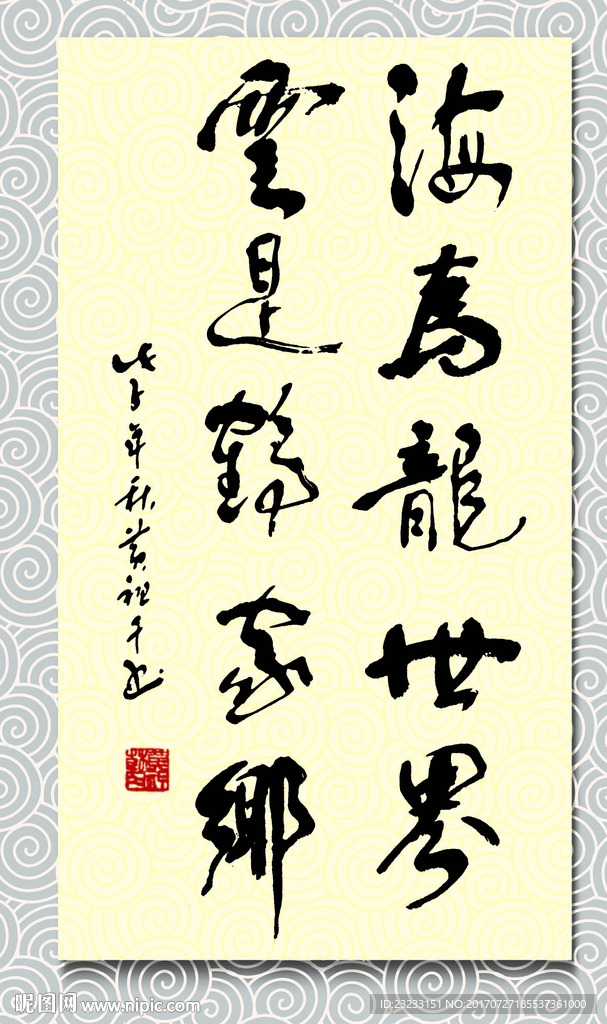 海為龍世界
雲是鶴家鄉
戊子年秋黄祖平书
昵图网 www.nipic.com
ID:23233151 NO:20170727185537361000